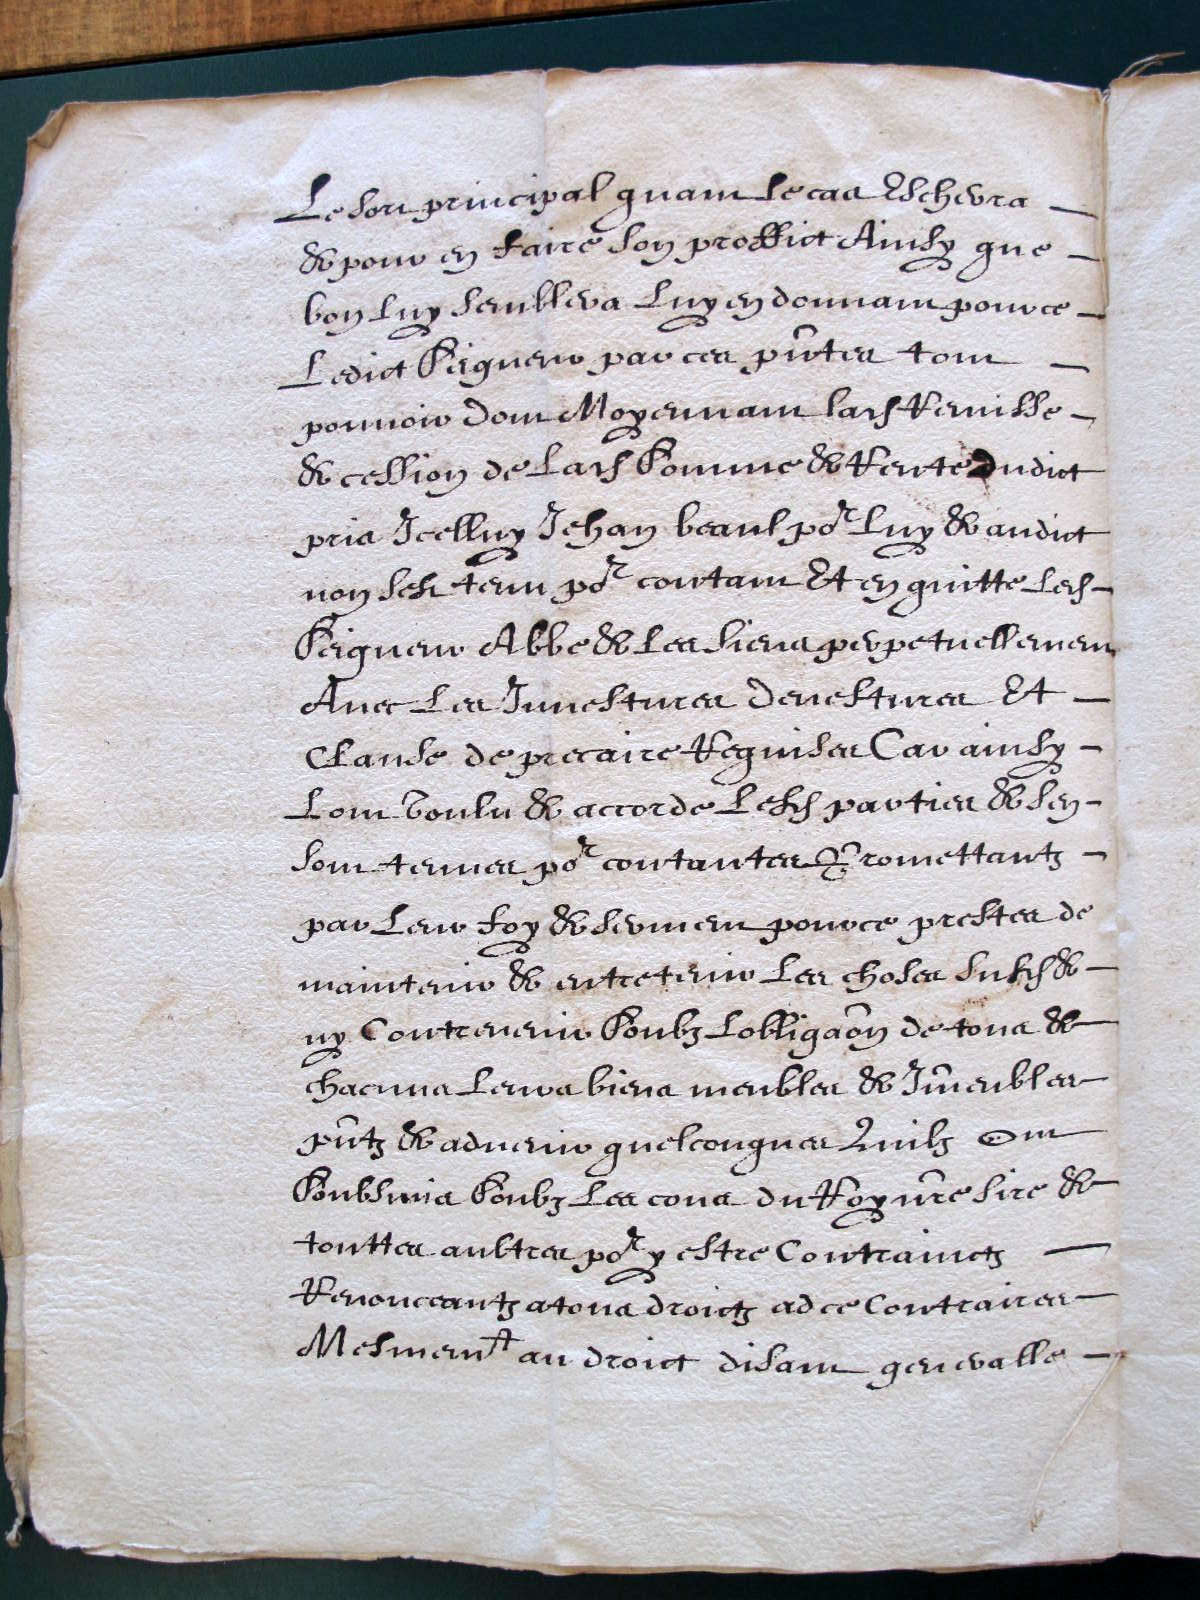 Le sort principal quant le cas Escherra
& pour en faire son proffict Ainsy que
bon luy semblera luy en donnant pour ce
Ledict Seigneur par ces pñtes tout
pouvoir dont Moyennant lad Remisse
& cession de lad Somme & Rente dudict
pris Icelluy Jehan beaul por luy & audict
non sest tenu por contant Et en quitte led
Seigneur Abbe & les siens perpetuellement
Avec les Investures devestures Et
Clause de precaire Requises Car ainsy
Lont voulu & accorde lesd parties & sen
sont tenues por contantes Promettantz
par leur foy & serment pour ce prestes de
maintenir & entretenir les choses susd &
ny Contrevenir Soubz lobligãon de tous &
chacuns leurs biens meubles & Im̃eubles
pñtz & advenir quelconques Quilz Ont
Soubsmis Soubz les cours du Roy nr̃e sire &
touttes aultres por y estre Contrainctz
Renonceantz a tous droictz ad ce Contraires
Mesment au droict disant generalle